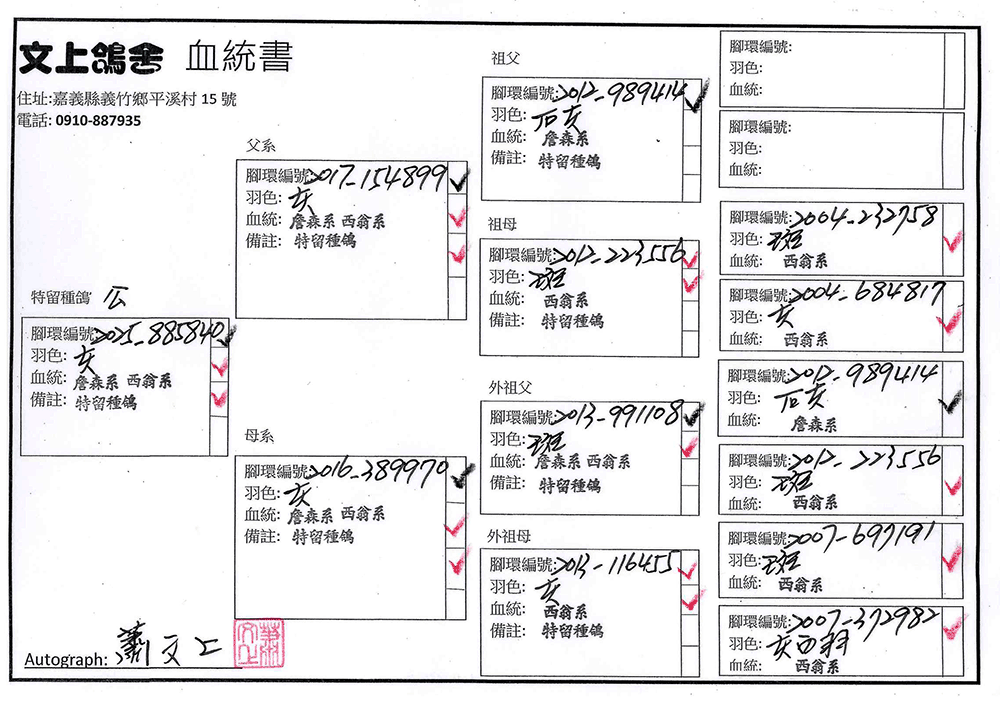 文上鴿舍 血統書
住址:嘉義縣義竹鄉平溪村 15 號
電話: 0910-887935
特留種鴿
腳環編號:2025-885840
羽色: 灰
血統: 詹森系 西翁系
備註: 特留種鴿
父系
腳環編號:2017-154899
羽色: 灰
血統: 詹森系 西翁系
備註: 特留種鴿
母系
腳環編號:2016-389970
羽色: 灰
血統: 詹森系 西翁系
備註: 特留種鴿
祖父
腳環編號:2012-989414
羽色: 石灰
血統: 詹森系
備註: 特留種鴿
祖母
腳環編號:2012-223556
羽色: 斑
血統: 西翁系
備註: 特留種鴿
外祖父
腳環編號:2013-991108
羽色: 斑
血統: 詹森系 西翁系
備註: 特留種鴿
外祖母
腳環編號:2013-116455
羽色: 灰
血統: 西翁系
備註: 特留種鴿
腳環編號:
羽色:
血統:
腳環編號:
羽色:
血統:
腳環編號:2004-232758
羽色: 斑
血統: 西翁系
腳環編號:2004-684817
羽色: 灰
血統: 西翁系
腳環編號:2012-989414
羽色: 石灰
血統: 詹森系
腳環編號:2012-223556
羽色: 斑
血統: 西翁系
腳環編號:2007-697191
羽色: 斑
血統: 西翁系
腳環編號:2007-372982
羽色: 灰白羽
血統: 西翁系
Autograph: 蕭文上
蕭文上